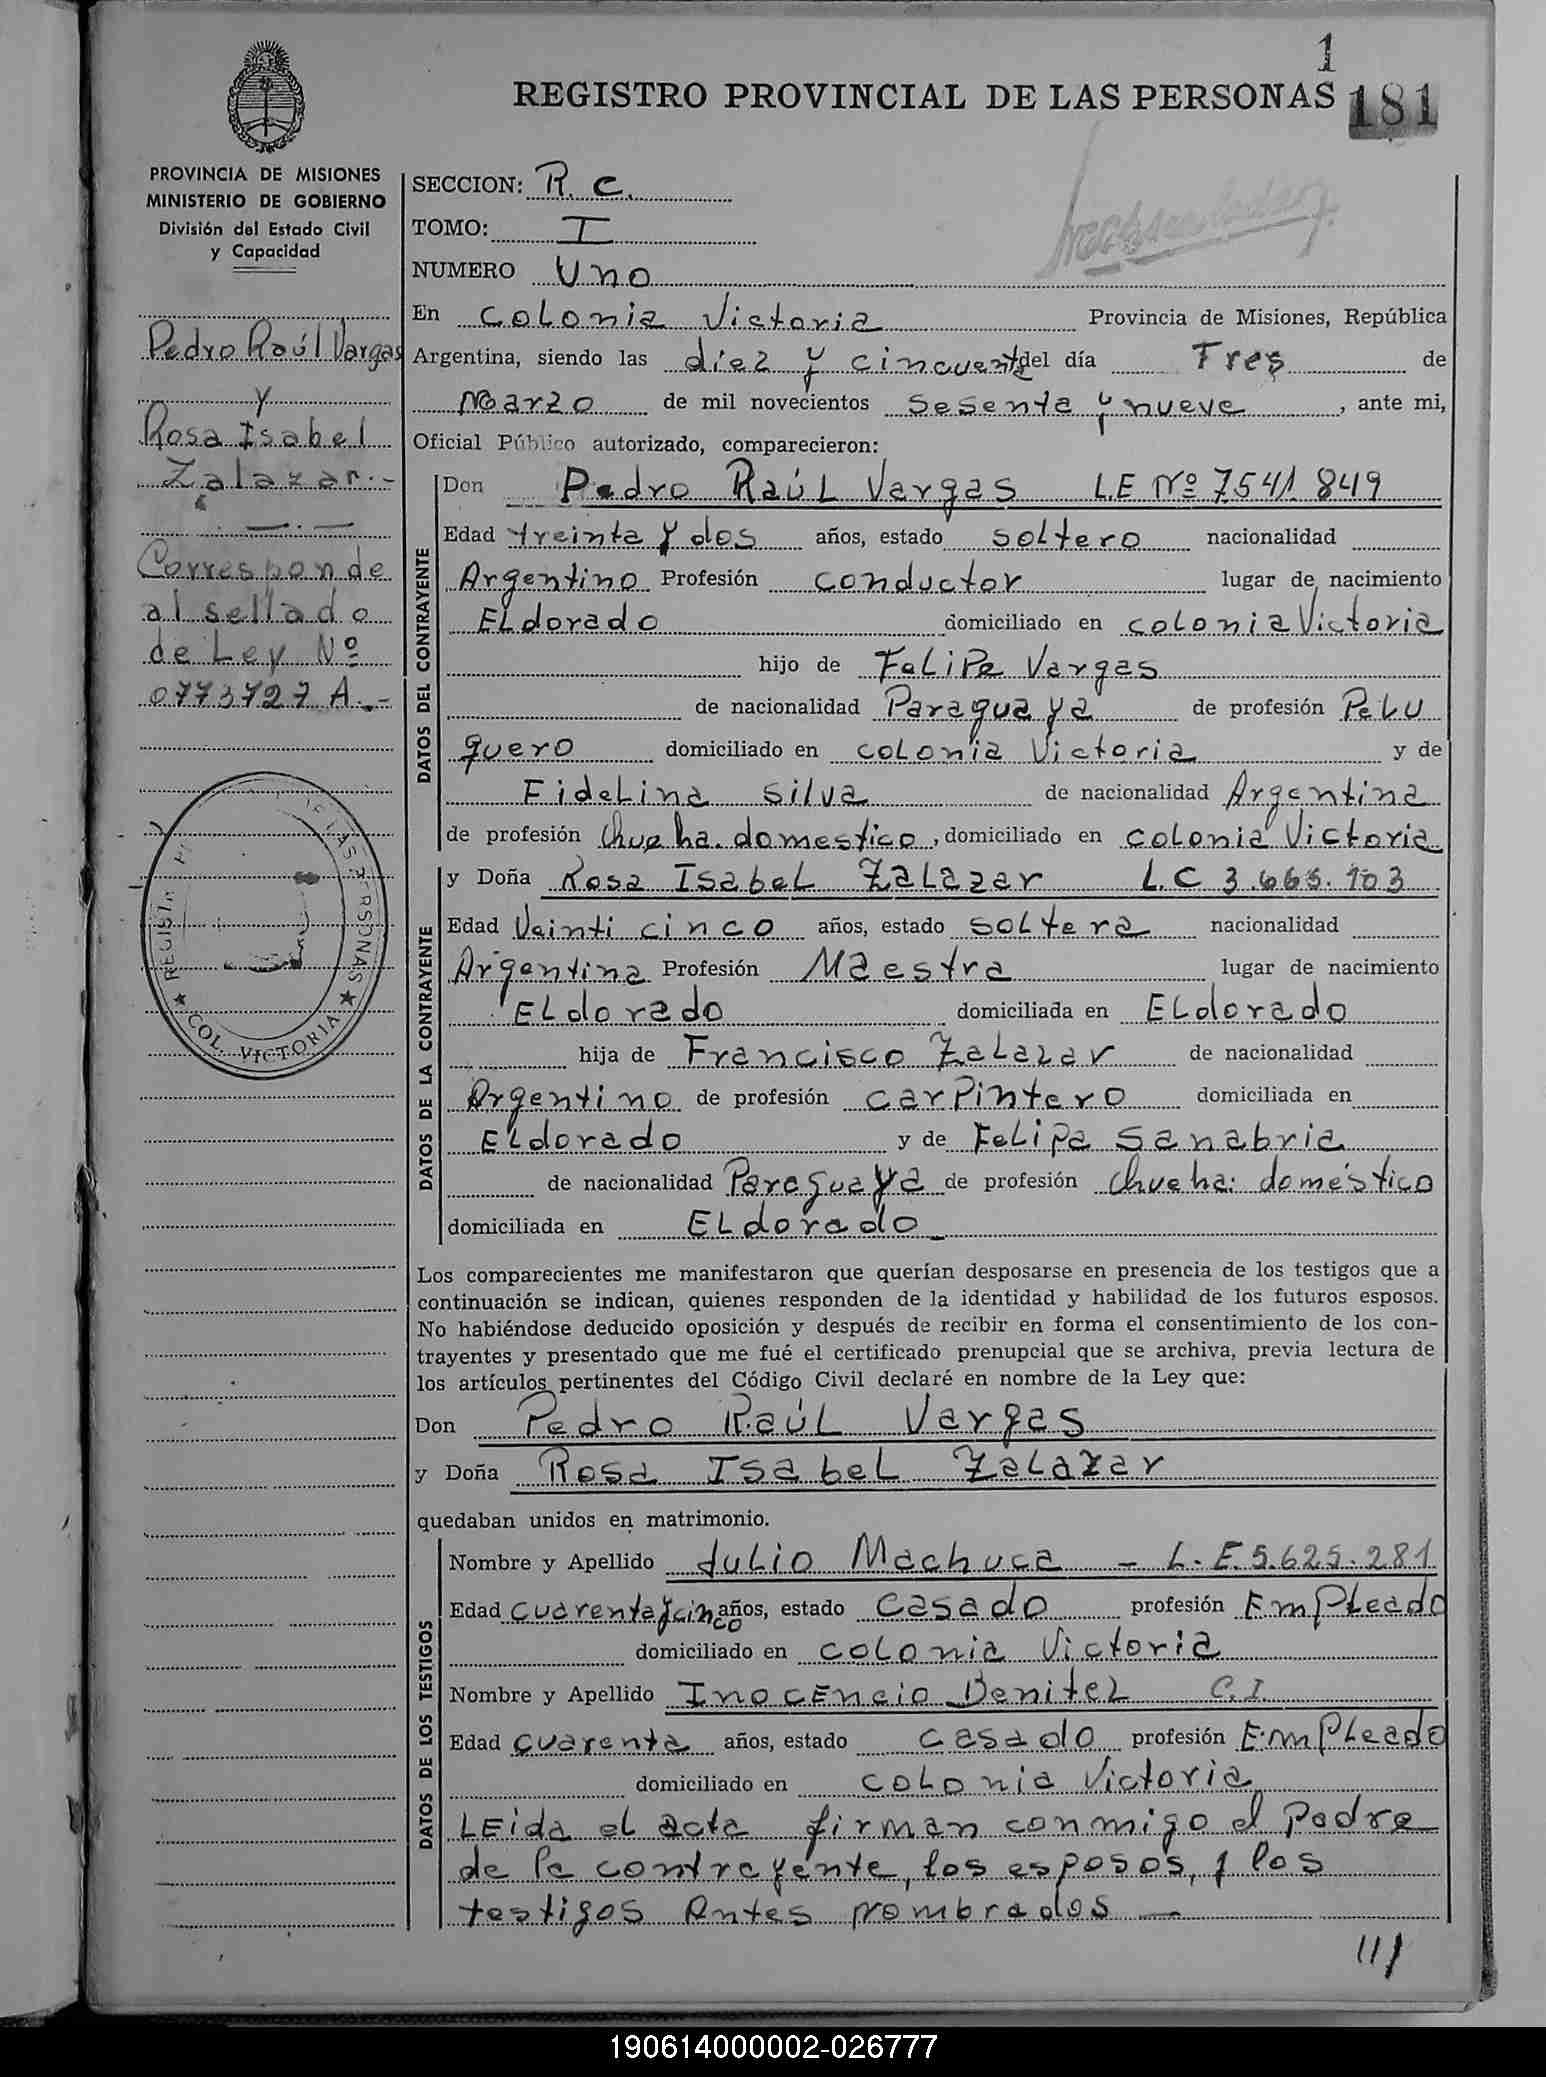 1
REGISTRO PROVINCIAL DE LAS PERSONAS 181
PROVINCIA DE MISIONES
MINISTERIO DE GOBIERNO
División del Estado Civil
y Capacidad
Pedro Raúl Vargas
y
Rosa Isabel
Zalazar.-
Corresponde
al sellado
de Ley Nº
0773727 A.-
REGIST DE LAS PERSONAS
★ COL. VICTORIA ★
SECCION: R. C.
TOMO: I
NUMERO Uno
En Colonia Victoria Provincia de Misiones, República
Argentina, siendo las diez y cincuenta del día Tres de
Marzo de mil novecientos sesenta y nueve, ante mi,
Oficial Público autorizado, comparecieron:
DATOS DEL CONTRAYENTE
Don Pedro Raúl Vargas L.E Nº 7541849
Edad treinta y dos años, estado soltero nacionalidad
Argentino Profesión conductor lugar de nacimiento
Eldorado domiciliado en colonia Victoria
hijo de Felipe Vargas
de nacionalidad Paraguaya de profesión Pelu
quero domiciliado en colonia Victoria y de
Fidelina Silva de nacionalidad Argentina
de profesión Queha. domestico, domiciliado en colonia Victoria
DATOS DE LA CONTRAYENTE
y Doña Rosa Isabel Zalazar L.C 3.665.103
Edad Veinti cinco años, estado soltera nacionalidad
Argentina Profesión Maestra lugar de nacimiento
Eldorado domiciliada en Eldorado
hija de Francisco Zalazar de nacionalidad
Argentino de profesión carpintero domiciliada en
Eldorado y de Felipa Sanabria
de nacionalidad Paraguaya de profesión Queha. doméstico
domiciliada en Eldorado
Los comparecientes me manifestaron que querían desposarse en presencia de los testigos que a
continuación se indican, quienes responden de la identidad y habilidad de los futuros esposos.
No habiéndose deducido oposición y después de recibir en forma el consentimiento de los con-
trayentes y presentado que me fué el certificado prenupcial que se archiva, previa lectura de
los artículos pertinentes del Código Civil declaré en nombre de la Ley que:
Don Pedro Raúl Vargas
y Doña Rosa Isabel Zalazar
quedaban unidos en matrimonio.
DATOS DE LOS TESTIGOS
Nombre y Apellido Julio Machuca - L.E.5.625.281
Edad cuarenta y cinco años, estado casado profesión Empleado
domiciliado en colonia Victoria
Nombre y Apellido Inocencio Benitez C.I.
Edad cuarenta años, estado casado profesión Empleado
domiciliado en colonia Victoria
Leida el acta firman conmigo el Padre
de la contrayente, los esposos, y los
testigos antes nombrados —
///
190614000002-026777